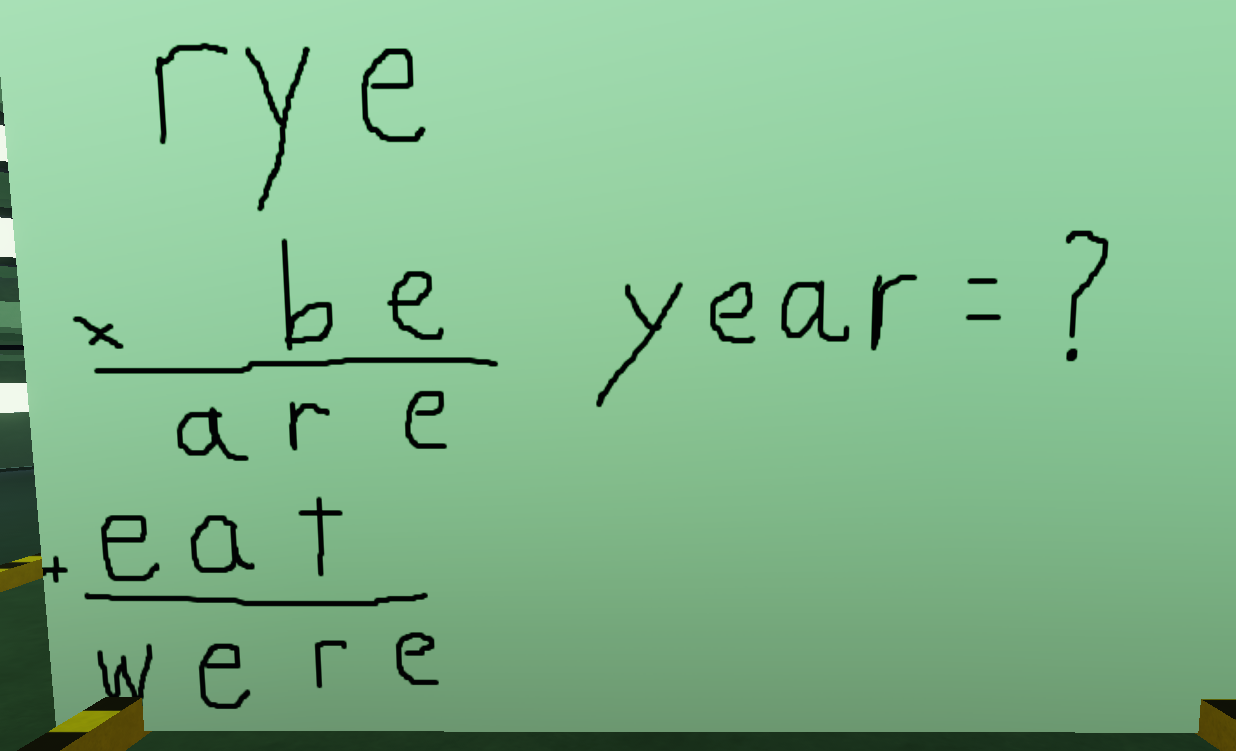 rye
× be
are
+ eat
were
year = ?